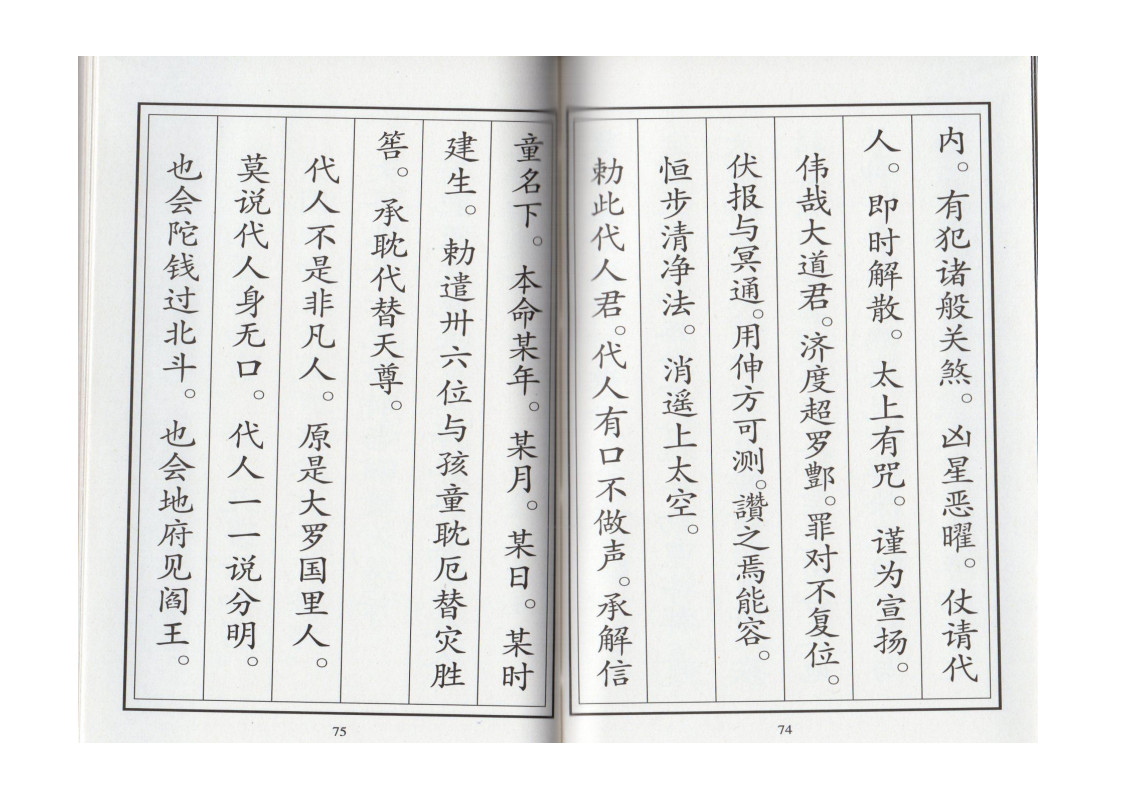 内。有犯诸般关煞。凶星恶曜。仗请代
人。即时解散。太上有咒。谨为宣扬。
伟哉大道君。济度超罗酆。罪对不复位。
伏报与冥通。用伸方可测。讚之焉能容。
恒步清净法。消遥上太空。
勅此代人君。代人有口不做声。承解信
74
童名下。本命某年。某月。某日。某时
建生。勅遣卅六位与孩童耽厄替灾胜
筶。承耽代替天尊。
代人不是非凡人。原是大罗国里人。
莫说代人身无口。代人一一说分明。
也会陀钱过北斗。也会地府见阎王。
75